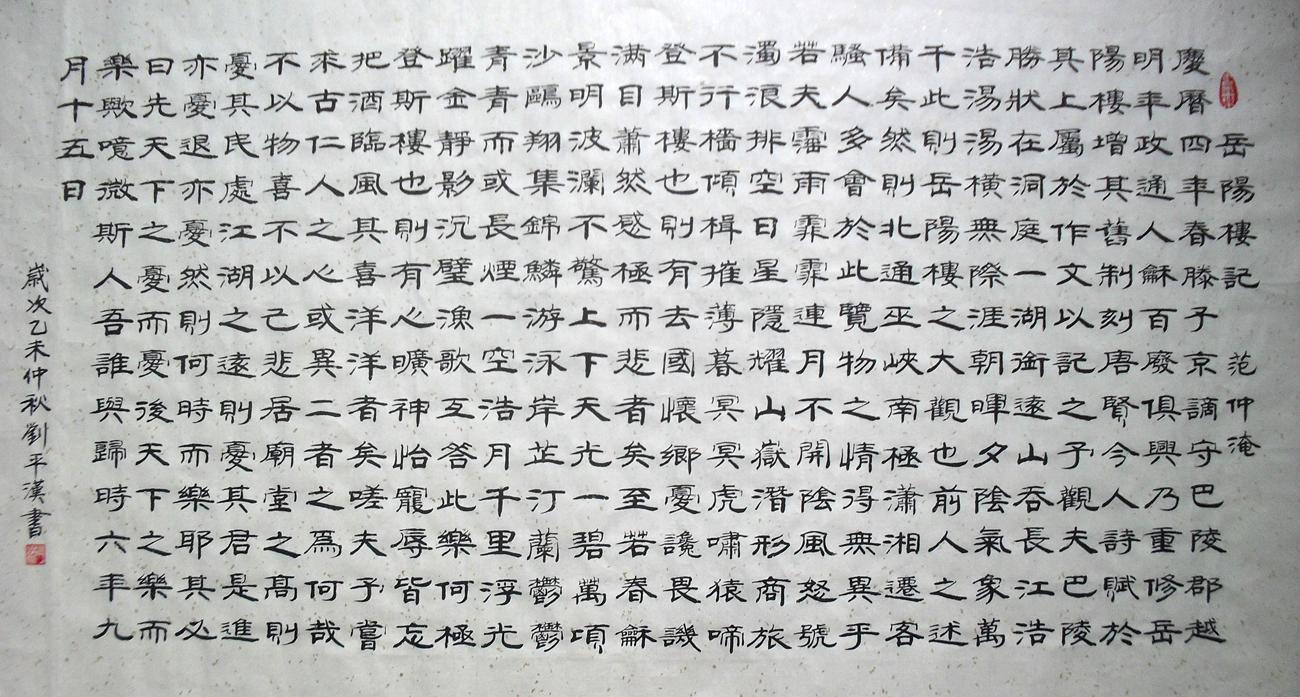 岳陽樓記 范仲淹
慶曆四年春滕子京謫守巴陵郡越
明年政通人龢百廢俱興乃重修岳
陽樓增其舊制刻唐賢今人詩賦於
其上屬於作文以記之予觀夫巴陵
勝狀在洞庭一湖銜遠山吞長江浩
浩湯湯橫無際涯朝暉夕陰氣象萬
千此則岳陽樓之大觀也前人之述
備矣然則北通巫峽南極瀟湘遷客
騷人多會於此覽物之情得無異乎
若夫霪雨霏霏連月不開陰風怒號
濁浪排空日星隱耀山嶽潛形商旅
不行檣傾楫摧薄暮冥冥虎嘯猿啼
登斯樓也則有去國懷鄉憂讒畏譏
满目蕭然感極而悲者矣至若春龢
景明波瀾不驚上下天光一碧萬頃
沙鷗翔集錦鱗游泳岸芷汀蘭鬱鬱
青青而或長煙一空浩月千里浮光
躍金靜影沉璧漁歌互答此樂何極
登斯樓也則有心曠神怡寵辱皆忘
把酒臨風其喜洋洋者矣嗟夫予嘗
求古仁人之心或異二者之為何哉
不以物喜不以己悲居廟堂之高則
憂其民處江湖之遠則憂其君是進
亦憂退亦憂然則何時而樂耶其必
曰先天下之憂而憂後天下之樂而
樂歟噫微斯人吾誰與歸時六年九
月十五日
歲次乙未仲秋劉平漢書